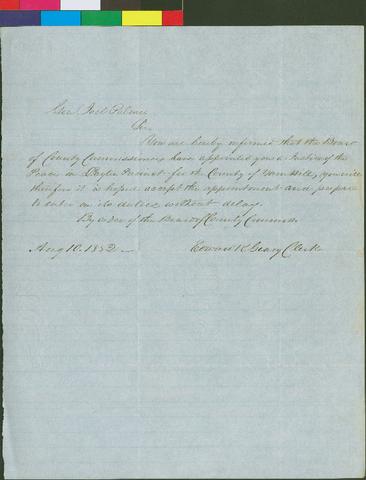 Gen Joel Palmer
Sir,
You are hereby informed that the Board
of County Commissioners have appointed you a Justice of the
Peace in Precinct for the County of Yam Hill, you will
therefore it is hoped accept the appointment and prepare
to enter on its duties without delay.
By order of the Board of County Commrs
Aug 10. 1852 —
Edward R Geary Clerk